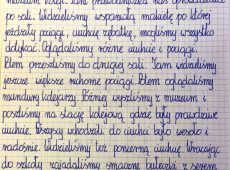 muzeum kolei. Pani przewodniczka nas oprowadzała
po sali. Widzieliśmy wspaniałą makietę po której
jeździły pociągi, wszystko
dotykać. Oglądaliśmy różne i pociągi.
Potem przeszliśmy do drugiej sali. Tam widzieliśmy
jeszcze większe ruchome pociągi. Potem oglądaliśmy
mundury kolejarzy. Później wyszliśmy z muzeum i
poszliśmy na stację kolejową gdzie były prawdziwe
Wszyscy wchodzili do było wesoło i
radośnie. Widzieliśmy też pancerną Wracając
do szkoły zajadaliśmy smaczne bułeczki z serem